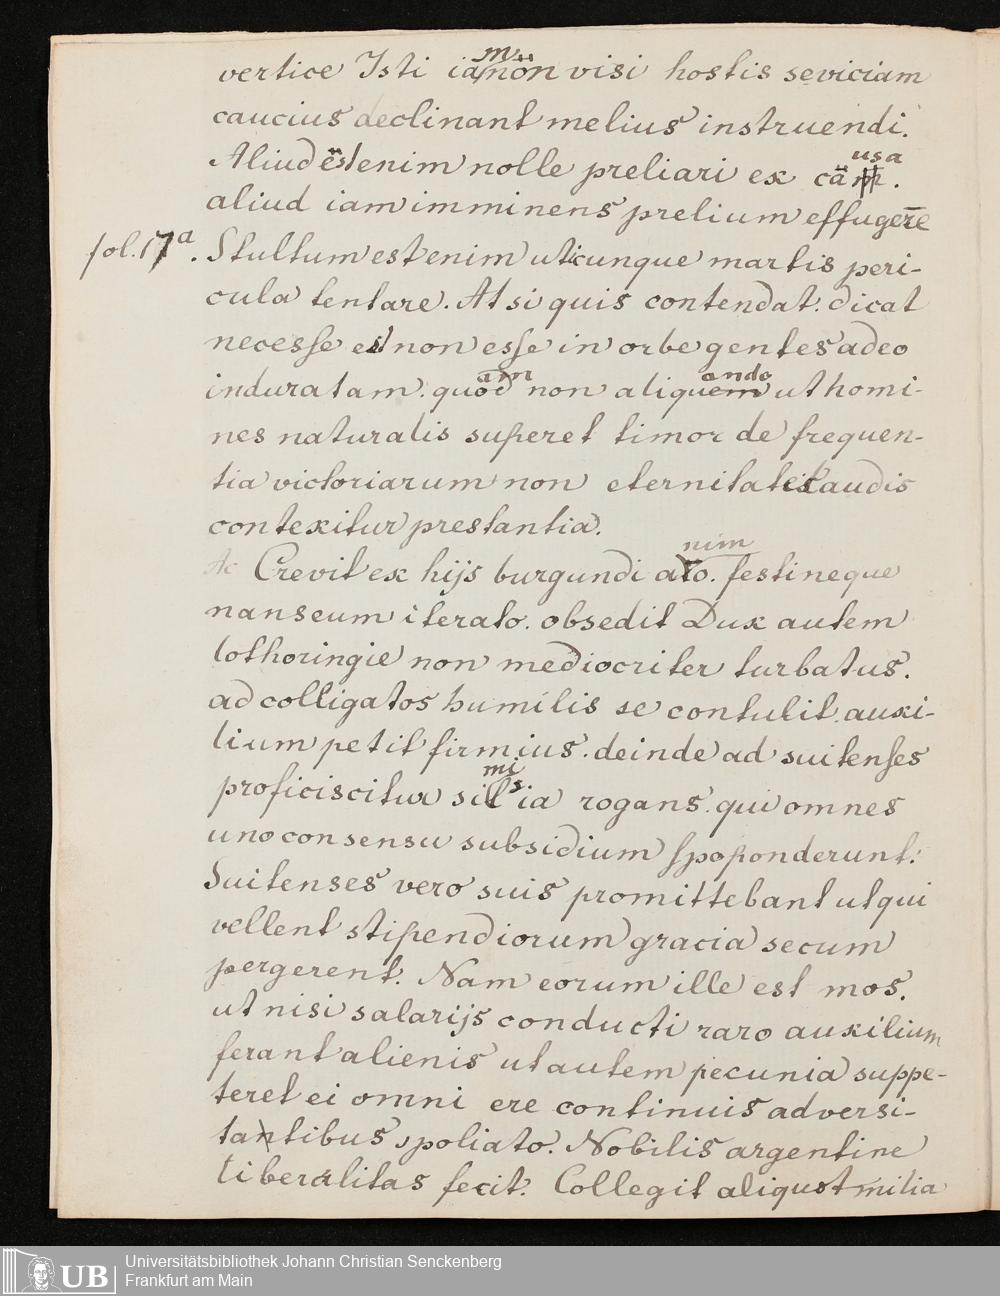 vertice Isti iam non visi hostis seviciam
caucius declinant melius instruendi.
Aliud est enim nolle preliari ex causa.
aliud iam imminens prelium effugere
fol. 17a. Stultum est enim uticunque martis peri-
cula tentare. At si quis contendat. dicat
necesse est non esse in orbe gentes adeo
induratam. quam non aliquando ut homi-
nes naturalis superet timor de frequen-
tia victoriarum non eternitatis laudis
contexitur prestantia.
Ac Crevit ex hijs burgundi animo. festineque
nanseum iterato. obsedit Dux autem
lothoringie non mediocriter turbatus.
ad colligatos humilis se contulit. auxi-
lium petit firmius. deinde ad suitenses
proficiscitur similia rogans. qui omnes
uno consensu subsidium spoponderunt.
Suitenses vero suis promittebant ut qui
vellent stipendiorum gracia secum
pergerent. Nam eorum ille est mos.
ut nisi salarijs conducti raro auxilium
ferant alienis ut autem pecunia suppe-
teret ei omni ere continuis adversi-
tatibus spoliato. Nobilis argentine
liberalitas fecit. Collegit aliquot milia
UB Universitätsbibliothek Johann Christian Senckenberg
Frankfurt am Main